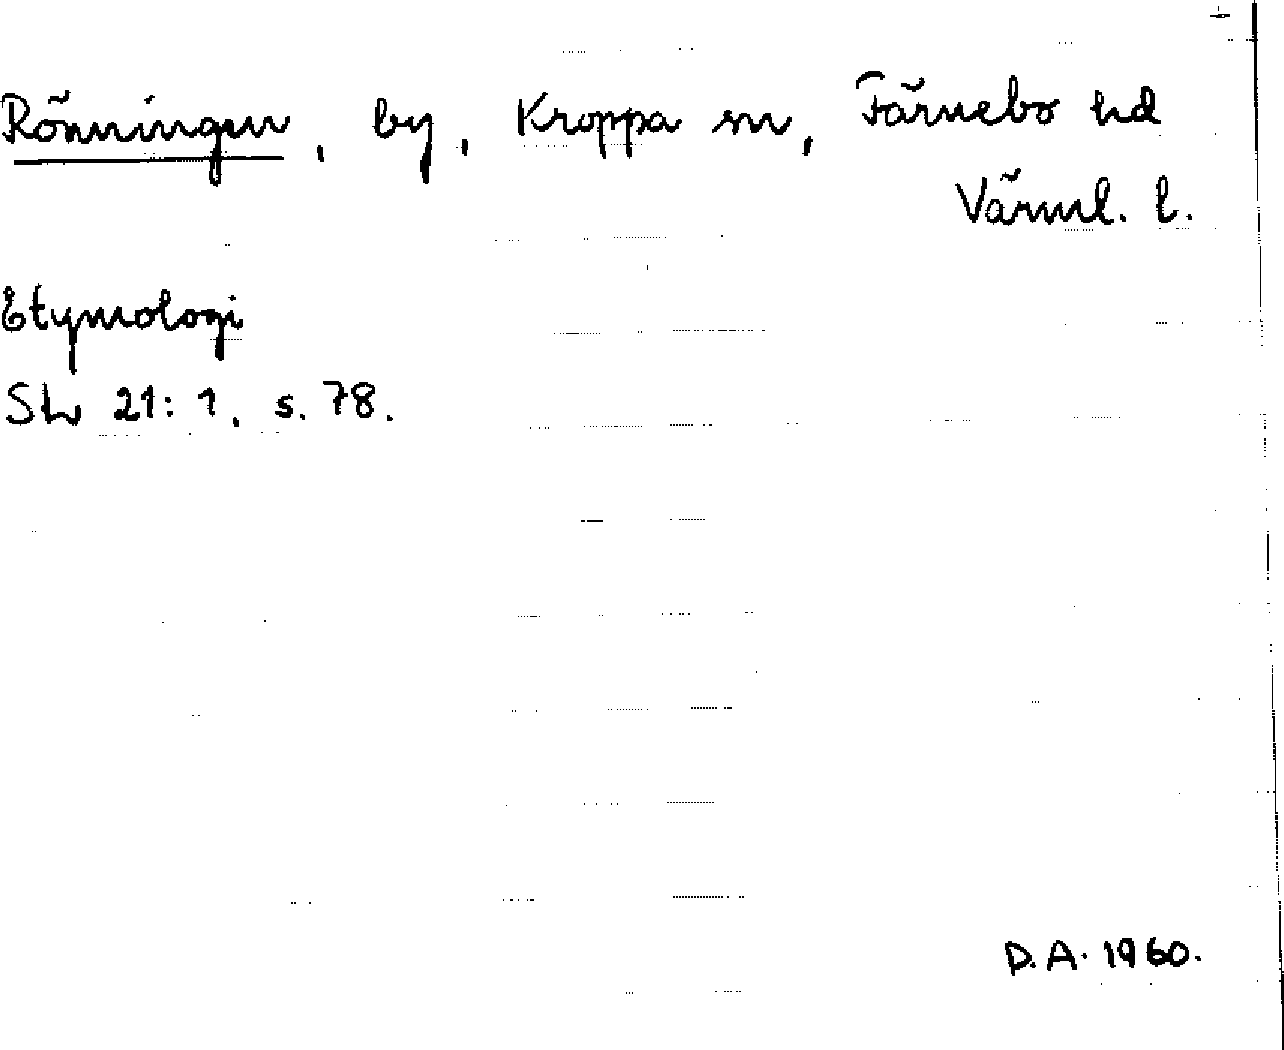 Rönningen, by, Kroppa sn, Färnebo hd
Värml. l.
Etymologi
Sln 21: 1. s. 78.
D.A. 1960.